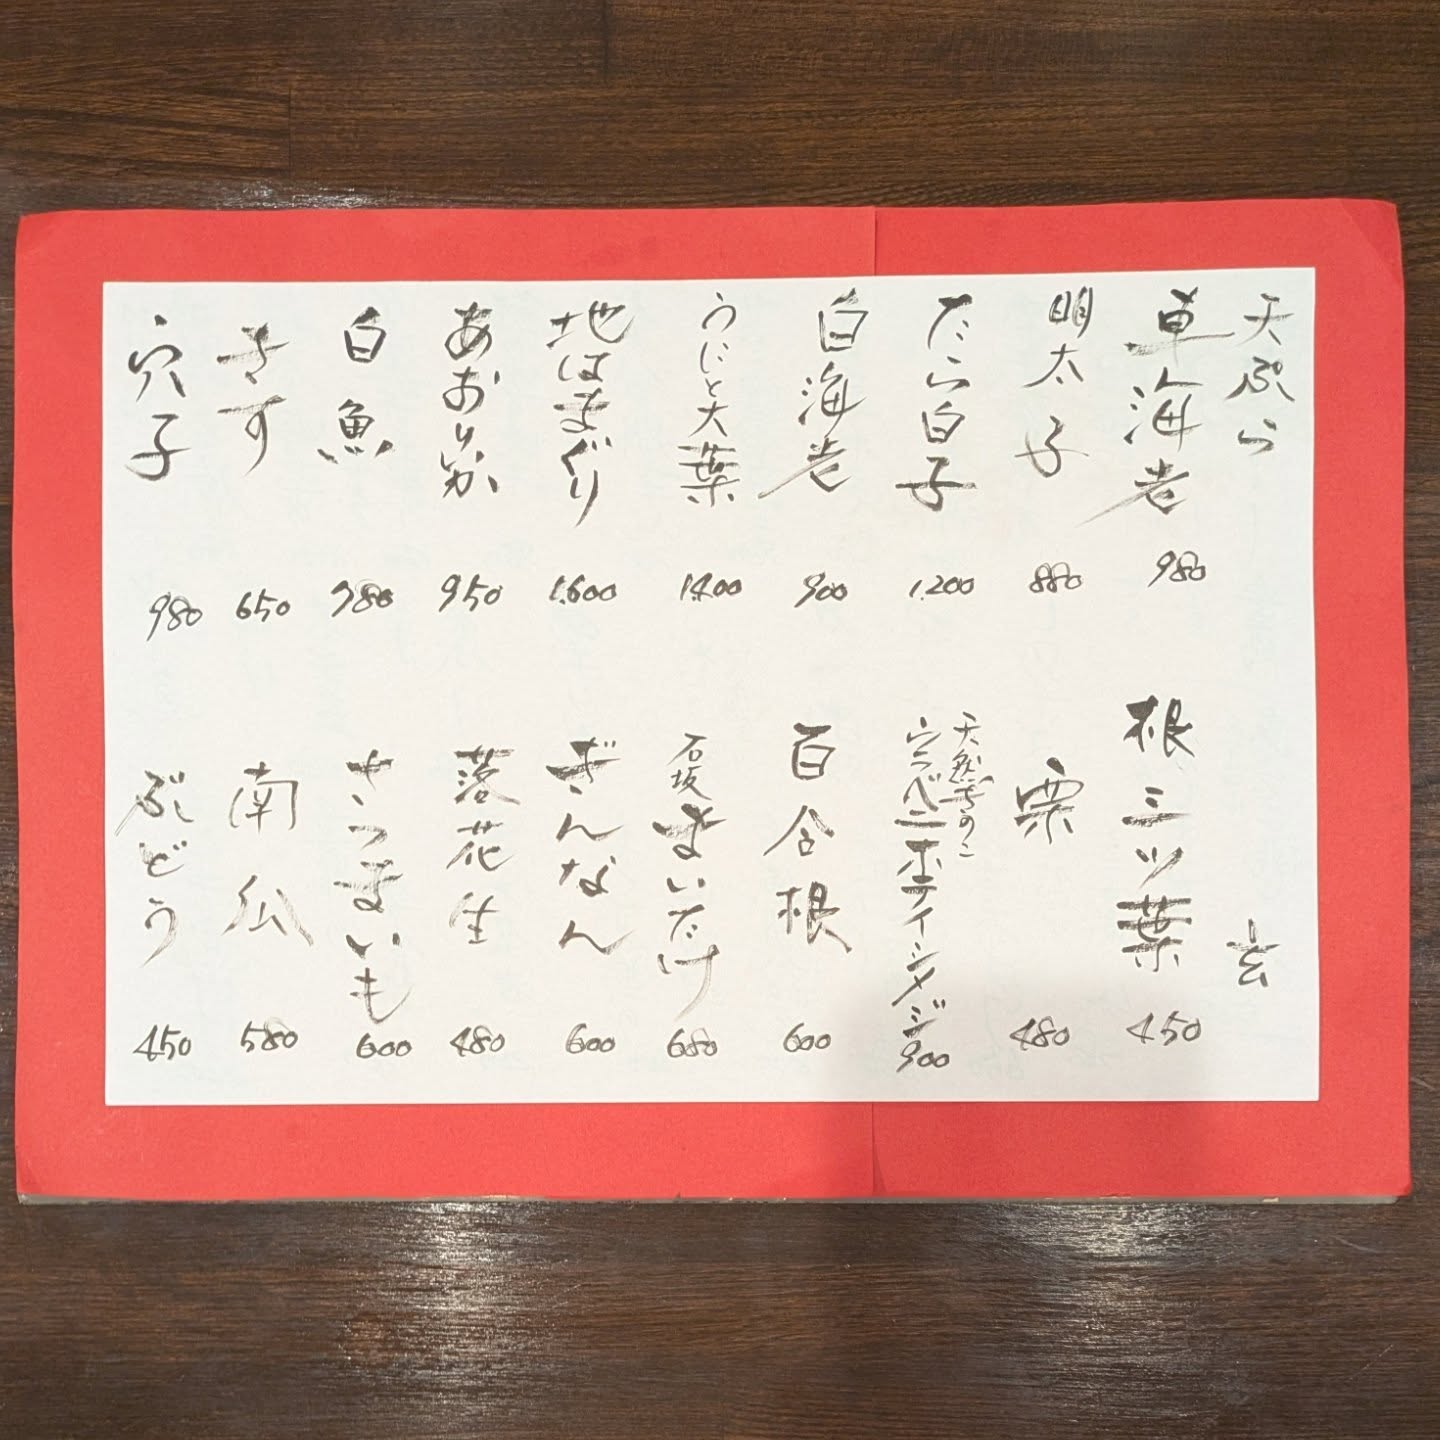 天ぷら
車海老 980
明太子 880
たら白子 1.200
白海老 900
うにと大葉 1400
地はまぐり 1.600
あおりいか 950
白魚 780
きす 650
穴子 980
玄
根三ツ葉 450
栗 480
天然きのこ
ウラベニホテイシメジ 900
百合根 600
石坂まいたけ 680
ぎんなん 600
落花生 480
さつまいも 600
南瓜 580
ぶどう 450